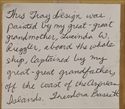 This Tray Design was
created by my great-great
grandmother, Lucinda W.
Ruggles, aboard the whale
ship, Captained by my
great-great grandfather
off the coast of the Azores
Islands. Theodora Bassett